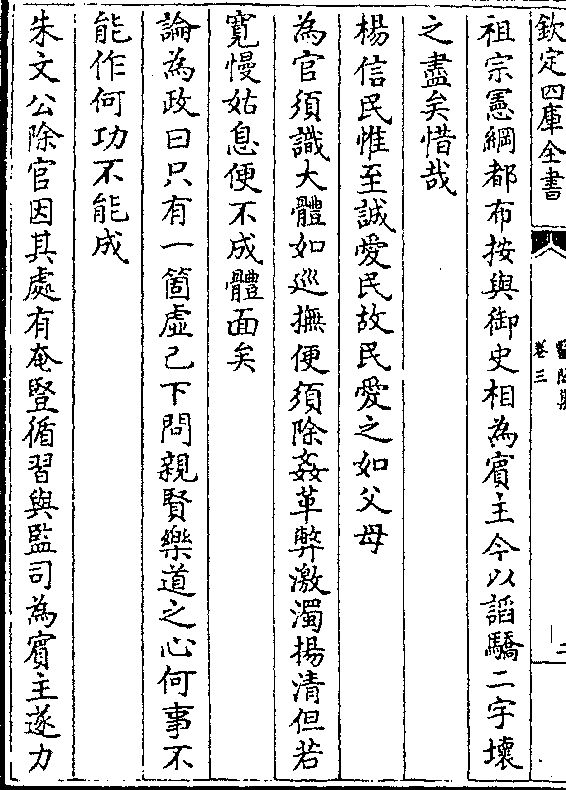 欽定四庫全書
卷三
祖宗憲綱都布按與御史相為賓主今以謟驕二字壞
之盡矣惜哉
楊信民惟至誠愛民故民愛之如父母
為官須識大體如巡撫便須除姦革弊激濁揚清但若
寛慢姑息便不成體面矣
論為政曰只有一箇虛己下問親賢樂道之心何事不
能作何功不能成
朱文公除官因其處有奄豎循習與監司為賓主遂力